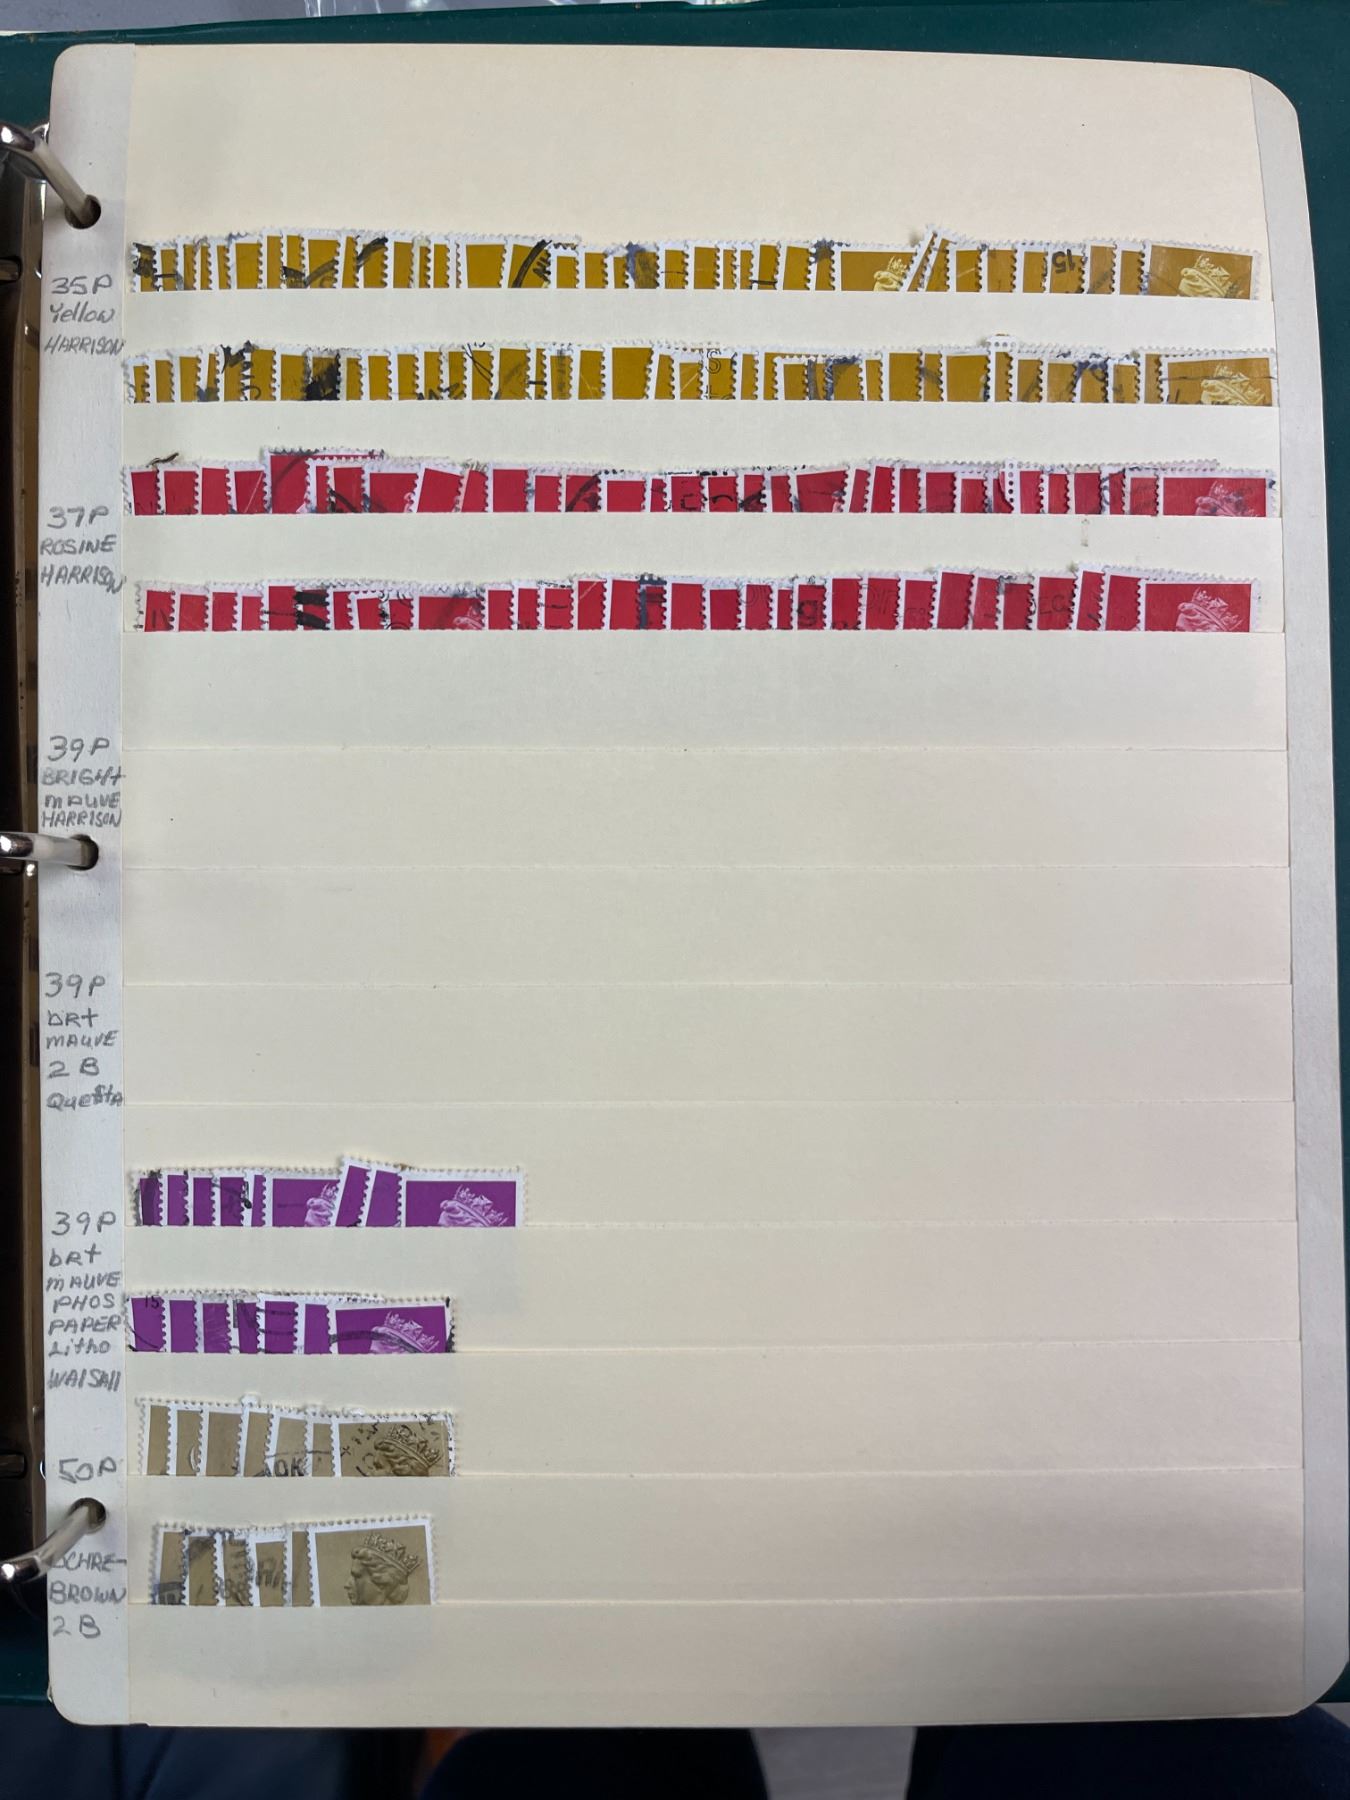 35P
Yellow
HARRISON
15
37P
ROSINE
HARRISON
39P
BRIGHT
MAUVE
HARRISON
39P
bRt
MAUVE
2 B
Questa
39P
bRt
MAUVE
PHOS
PAPER
Litho
WAlSAll
15
50P
OCHRE-
BROWN
2 B